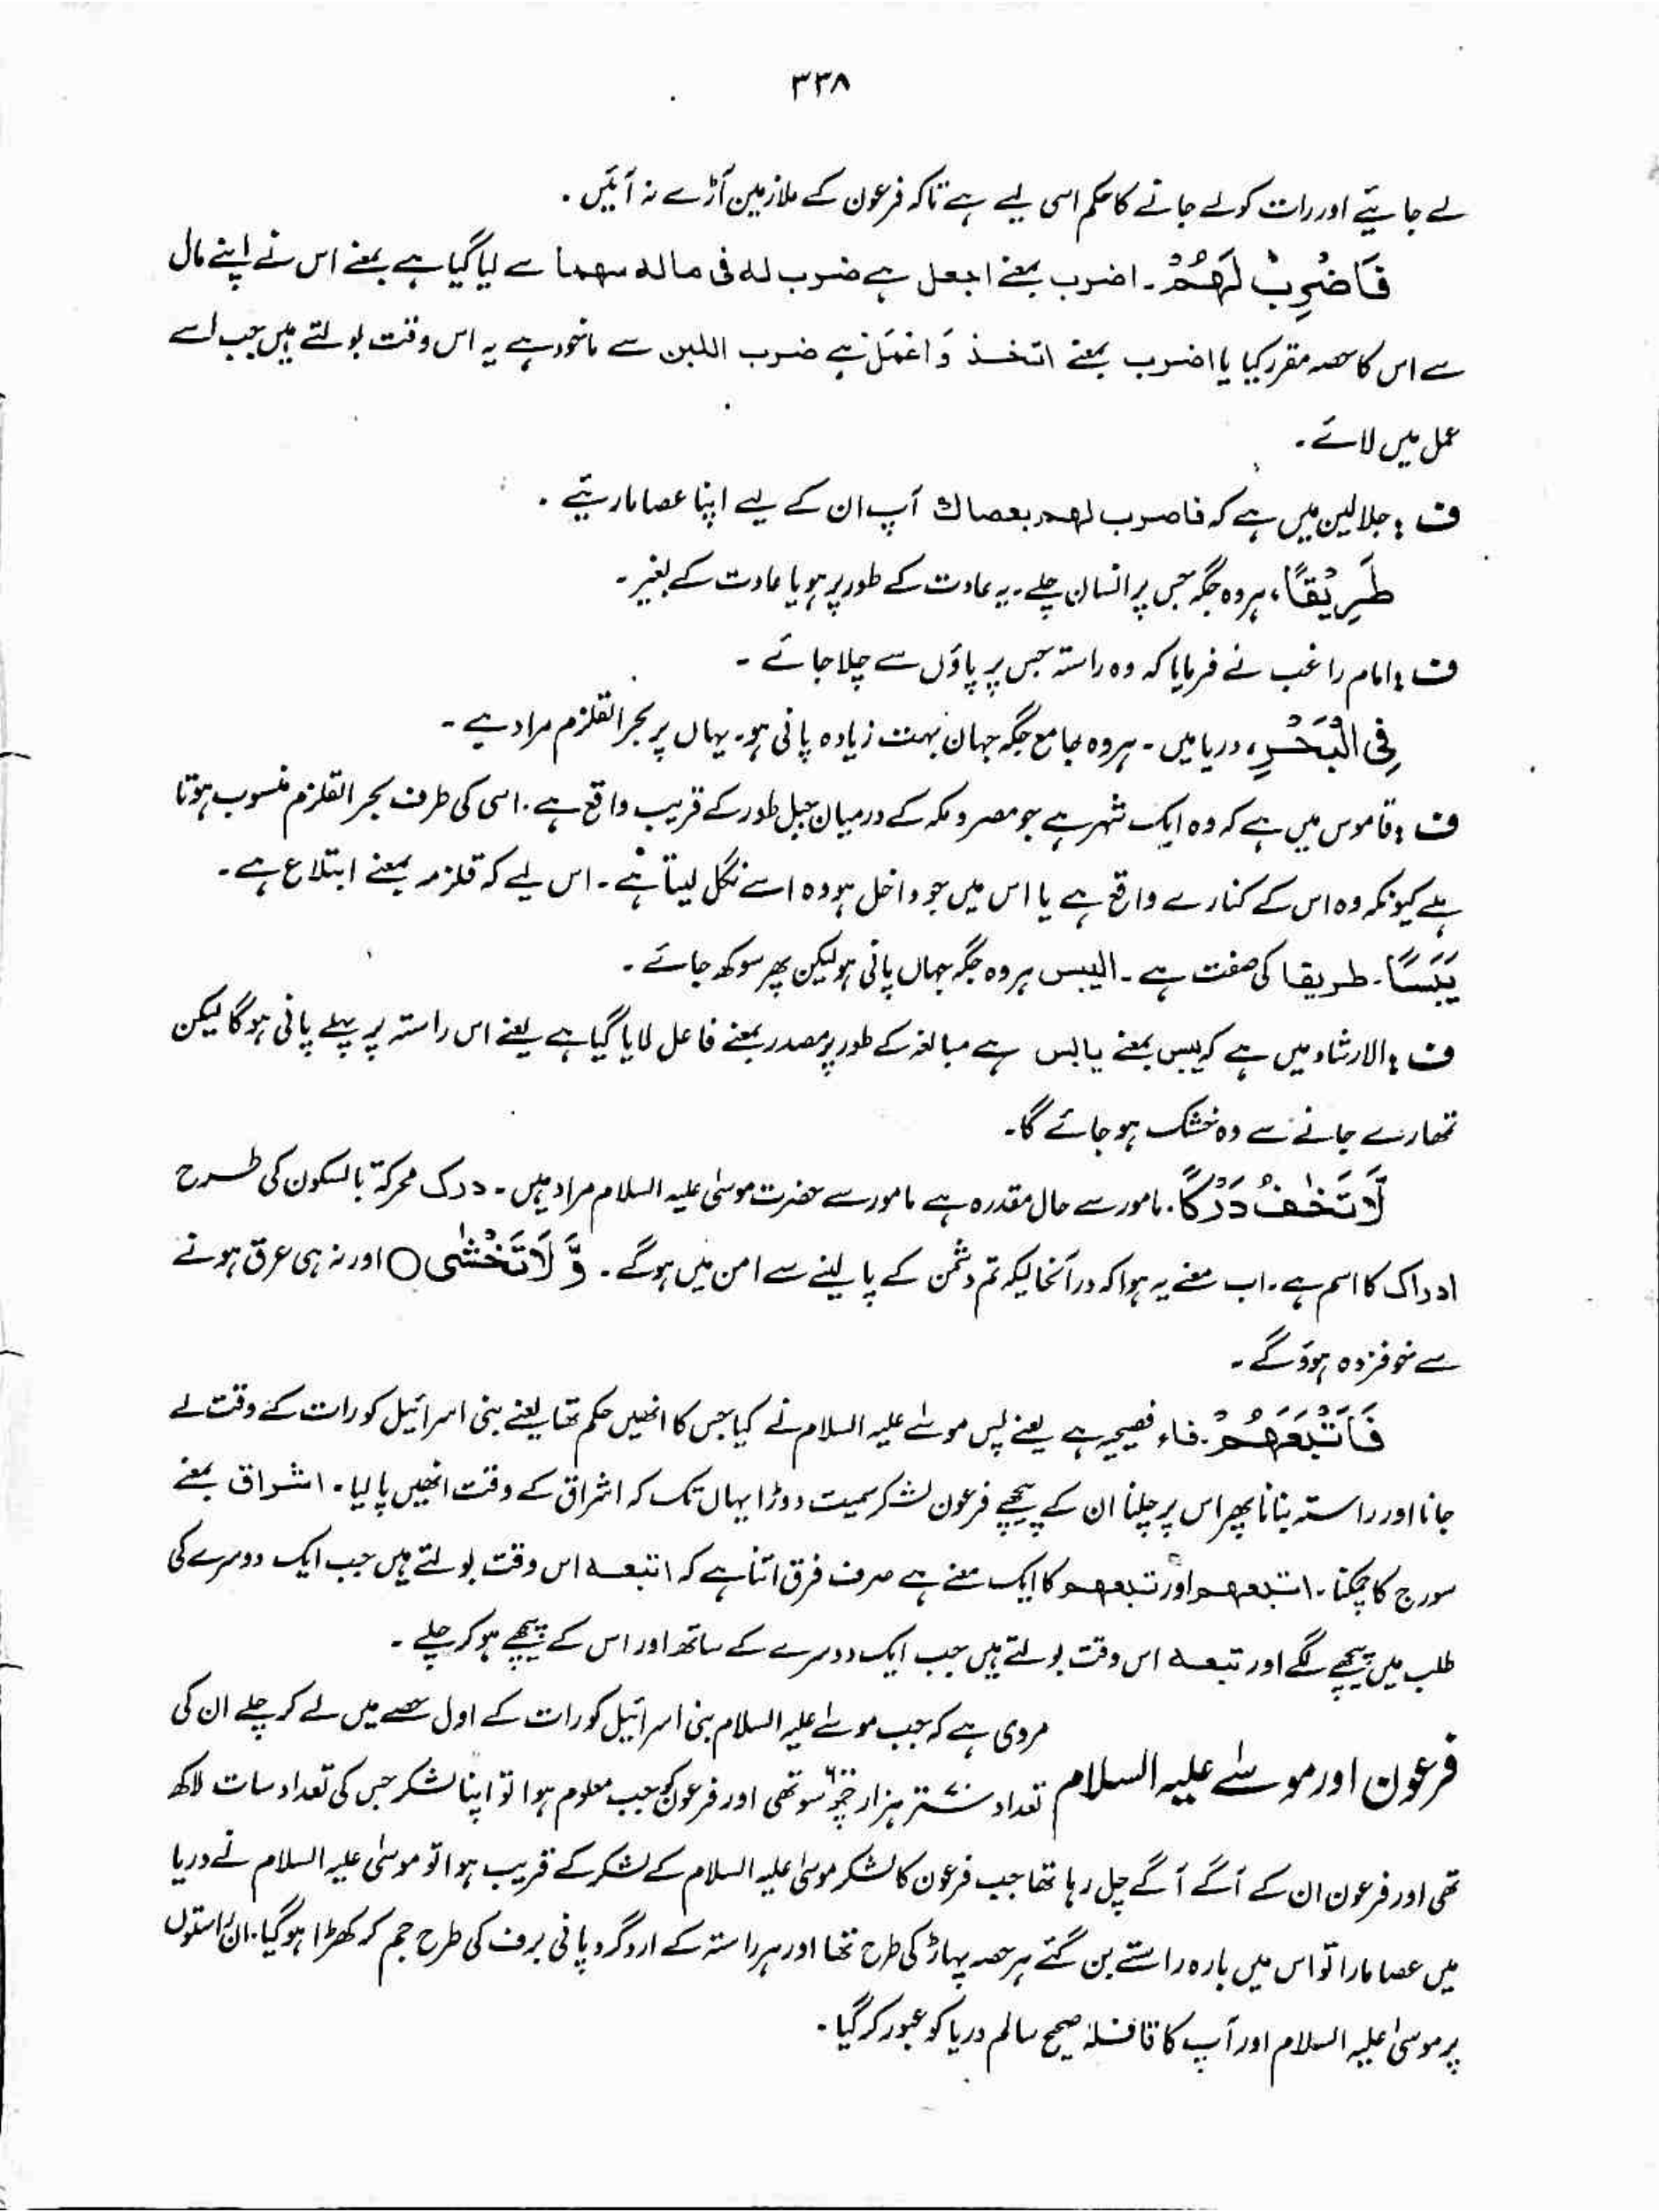 ۳۳۸
لے جایئے اور رات کو لے جانے کا حکم اسی لیے ہے تاکہ فرعون کے ملازمین آڑے نہ آئیں ۔
فَاضْرِبْ لَهُمْ ۔ اضرب بمعنے اجعل ہے ضرب لہ فی مالہ سھما سے لیا گیا ہے بمعنے اس نے اپنے مال
سے اس کا حصہ مقرر کیا یا اضرب بمعنے اتخذ وَاعْمَلْ ہے ضرب اللبن سے ماخوذ ہے یہ اس وقت بولتے ہیں جب اسے
عمل میں لائے ۔
ف : جلالین میں ہے کہ فاضرب لھم بعصاك آپ ان کے لیے اپنا عصا ماریئے ۔
طَرِيْقًا ، ہر وہ جگہ جس پر انسان چلے ۔ یہ عادت کے طور پر ہو یا عادت کے بغیر ۔
ف : امام راغب نے فرمایا کہ وہ راستہ جس پر پاؤں سے چلا جائے ۔
فِی الْبَحْرِ ، دریا میں ۔ ہر وہ جامع جگہ جہان بہت زیادہ پانی ہو ۔ یہاں پر بحر القلزم مراد ہے ۔
ف : قاموس میں ہے کہ وہ ایک شہر ہے جو مصر و مکہ کے درمیان جبل طور کے قریب واقع ہے ۔ اسی کی طرف بحر القلزم منسوب ہوتا
ہے کیونکہ وہ اس کے کنارے واقع ہے یا اس میں جو داخل ہو وہ اسے نگل لیتا ہے ۔ اس لیے کہ قلزمہ بمعنے ابتلاع ہے ۔
يَبَسًا ۔ طریقا کی صفت ہے ۔ الیبس ہر وہ جگہ جہاں پانی ہو لیکن پھر سوکھ جائے ۔
ف : الارشاد میں ہے کہ یبس بمعنے یابس ہے مبالغہ کے طور پر مصدر بمعنے فاعل لایا گیا ہے یعنے اس راستہ پر پہلے پانی ہو گا لیکن
تمھارے جانے سے وہ خشک ہو جائے گا ۔
لَّا تَخٰفُ دَرَكًا ۔ مامور سے حال مقدرہ ہے مامور سے حضرت موسیٰ علیہ السلام مراد ہیں ۔ درک محرکۃ بالسکون کی طرح
ادراک کا اسم ہے ۔ اب معنے یہ ہوا کہ درآنحالیکہ تم دشمن کے پا لینے سے امن میں ہوگے ۔ وَّ لَا تَخْشٰی ○ اور نہ ہی غرق ہونے
سے خوفزدہ ہوؤ گے ۔
فَاَتْبَعَهُمْ ۔ فاء فصیحیہ ہے یعنے پس موسےٰ علیہ السلام نے کیا جس کا انھیں حکم تھا یعنے بنی اسرائیل کو رات کے وقت لے
جانا اور راستہ بنانا پھر اس پر چلنا ان کے پیچھے فرعون لشکر سمیت دوڑا یہاں تک کہ اشراق کے وقت انھیں پا لیا ۔ اشراق بمعنے
سورج کا چمکنا ۔ اتبعھم اور تبعھم کا ایک معنے ہے صرف فرق اتنا ہے کہ اتبعہ اس وقت بولتے ہیں جب ایک دوسرے کی
طلب میں پیچھے لگے اور تبعہ اس وقت بولتے ہیں جب ایک دوسرے کے ساتھ اور اس کے پیچھے ہو کر چلے ۔
فرعون اور موسےٰ علیہ السلام
مروی ہے کہ جب موسےٰ علیہ السلام بنی اسرائیل کو رات کے اول حصے میں لے کر چلے ان کی
تعداد ستر ہزار چھ سو تھی اور فرعون کو جب معلوم ہوا تو اپنا لشکر جس کی تعداد سات لاکھ
تھی اور فرعون ان کے آگے آگے چل رہا تھا جب فرعون کا لشکر موسیٰ علیہ السلام کے لشکر کے قریب ہوا تو موسیٰ علیہ السلام نے دریا
میں عصا مارا تو اس میں بارہ راستے بن گئے ہر حصہ پہاڑ کی طرح تھا اور ہر راستہ کے ارد گرد پانی برف کی طرح جم کر کھڑا ہوگیا ۔ ان راستوں
پر موسیٰ علیہ السلام اور آپ کا قافلہ صحیح سالم دریا کو عبور کر گیا ۔